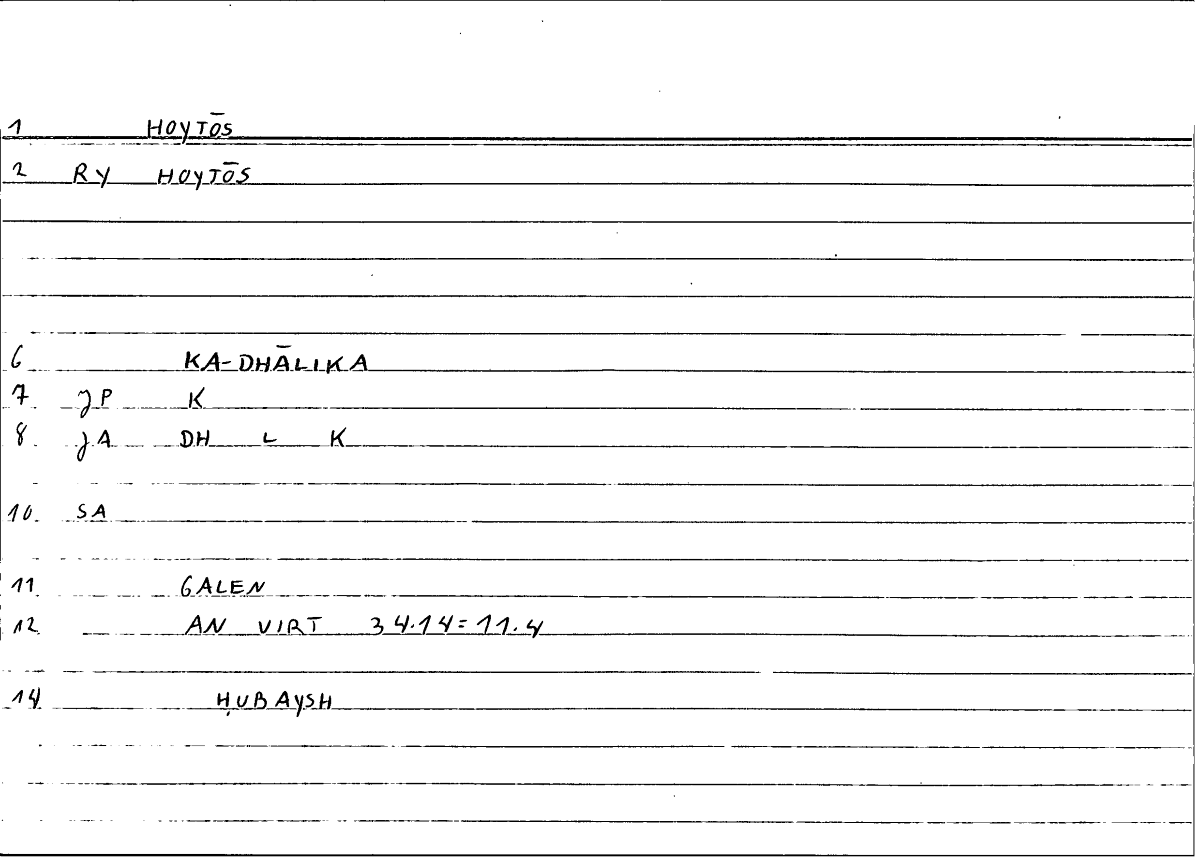 1 HOYTŌS
2 RY HOYTŌS
6 KA-DHĀLIKA
7 JP K
8 JA DH L K
10. SA
11 GALEN
12 AN VIRT 34.14=11.4
14 ḤUBAYSH